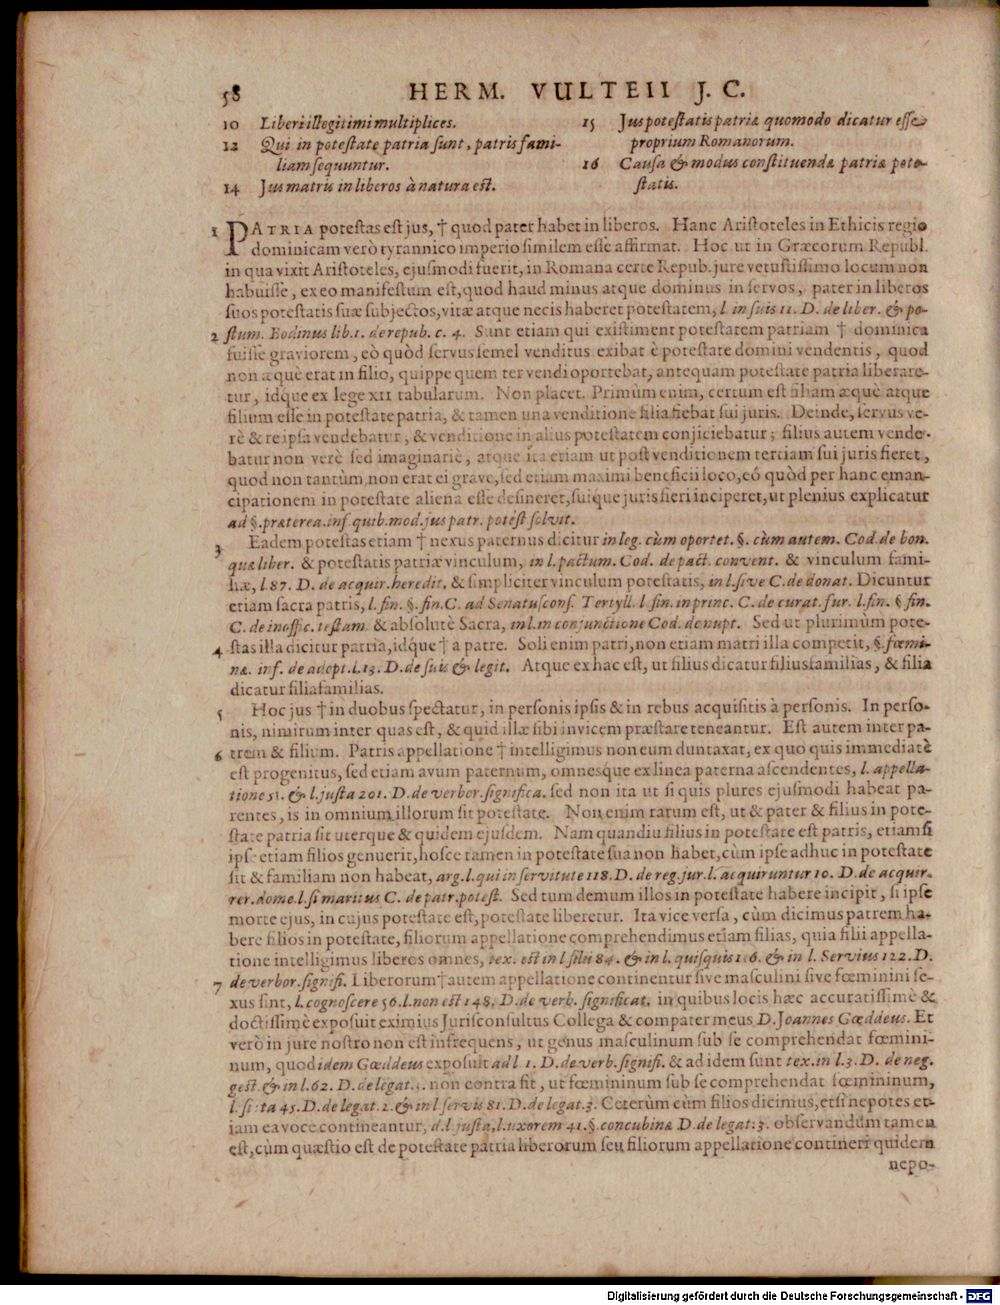 58 HERM. VULTEII J. C.
10 Liberi illegitimi multiplices.
12 Qui in potestate patria sunt, patris fami-
liam sequuntur.
14 Jus matris in liberos à natura est.
15 Jus potestatis patriæ quomodo dicatur esse
proprium Romanorum.
16 Causa & modus constituendæ patriæ pote-
statis.
1 PATRIA potestas est jus, † quod pater habet in liberos. Hanc Aristoteles in Ethicis regio
dominicam verò tyrannico imperio similem esse affirmat. Hoc ut in Græcorum Republ.
in qua vixit Aristoteles, ejusmodi fuerit, in Romana certe Repub. jure vetustissimo locum non
habuisse, ex eo manifestum est, quod haud minus atque dominus in servos, pater in liberos
suos potestatis suæ subjectos, vitæ atque necis haberet potestatem, l. in suis 11. D. de liber. & po-
2 stum. Bodinus lib. 1. de repub. c. 4. Sunt etiam qui existiment potestatem patriam † dominica
fuisse graviorem, eò quòd servus semel venditus exibat è potestate domini vendentis, quod
non æquè erat in filio, quippe quem ter vendi oportebat, antequam potestate patria liberare-
tur, idque ex lege XII tabularum. Non placet. Primùm enim, certum est filiam æquè atque
filium esse in potestate patria, & tamen una venditione filia fiebat sui juris. Deinde, servus ve-
rè & reipsa vendebatur, & venditione in alius potestatem conjiciebatur; filius autem vende-
batur non verè sed imaginariè, atque ita etiam ut post venditionem tertiam sui juris fieret,
quod non tantùm non erat ei grave, sed etiam maximi beneficii loco, eó quòd per hanc eman-
cipationem in potestate aliena esse desineret, suique juris fieri inciperet, ut plenius explicatur
ad §. præterea. inf. quib. mod. jus patr. potest. solvit.
3 Eadem potestas etiam † nexus paternus dicitur in leg. cùm oportet. §. cùm autem. Cod. de bon.
quæ liber. & potestatis patriæ vinculum, in l. pactum. Cod. de pact. convent. & vinculum fami-
liæ, l. 87. D. de acquir. heredit. & simpliciter vinculum potestatis, in l. sive C. de donat. Dicuntur
etiam sacra patris, l. fin. §. fin. C. ad Senatusconf. Tertyll. l. fin. in princ. C. de curat. fur. l. fin. § fin.
C. de inoffic. testam. & absolutè Sacra, in l. in conjunctione Cod. de nupt. Sed ut plurimùm pote-
4 stas illa dicitur patria, idque † a patre. Soli enim patri, non etiam matri illa competit, §. fœmi-
næ. inf. de adopt. l. 13. D. de suis & legit. Atque ex hac est, ut filius dicatur filiusfamilias, & filia
dicatur filiafamilias.
5 Hoc jus † in duobus spectatur, in personis ipsis & in rebus acquisitis à personis. In perso-
nis, nimirum inter quas est, & quid illæ sibi invicem præstare teneantur. Est autem inter pa-
6 trem & filium. Patris appellatione † intelligimus non eum duntaxat, ex quo quis immediatè
est progenitus, sed etiam avum paternum, omnesque ex linea paterna ascendentes, l. appella-
tione 51. & l. justa 201. D. de verbor. significa. sed non ita ut si quis plures ejusmodi habeat pa-
rentes, is in omnium illorum sit potestate. Non enim rarum est, ut & pater & filius in pote-
state patria sit uterque & quidem ejusdem. Nam quandiu filius in potestate est patris, etiam si
ipse etiam filios genuerit, hosce tamen in potestate sua non habet, cùm ipse adhuc in potestate
sit & familiam non habeat, arg. l. qui in servitute 118. D. de reg. jur. l. acquiruntur 10. D. de acquir.
rer. dome. l. si maritus C. de patr. potest. Sed tum demum illos in potestate habere incipit, si ipse
morte ejus, in cujus potestate est, potestate liberetur. Ita vice versa, cùm dicimus patrem ha-
bere filios in potestate, filiorum appellatione comprehendimus etiam filias, quia filii appella-
tione intelligimus liberos omnes, tex. est in l. filii 84. & in l. quisquis 116. & in l. Servius 122. D.
7 de verbor. signifi. Liberorum † autem appellatione continentur sive masculini sive fœminini se-
xus sint, l. cognoscere 56. l. non est 148. D. de verb. significat. in quibus locis hæc accuratissimè &
doctissimè exposuit eximius Jurisconsultus Collega & compater meus D. Joannes Gœddeus. Et
verò in jure nostro non est infrequens, ut genus masculinum sub se comprehendat fœmini-
num, quod idem Gœddeus exposuit ad l. 1. D. de verb. signifi. & ad idem sunt tex. in l. 3. D. de neg.
gest. & in l. 62. D. de legat. non contra sit, ut fœmininum sub se comprehendat fœmininum,
45. D. de legat. 2. & in l. servis 81. D. de legat. 3. Ceterùm cùm filios dicimus, etsi nepotes et-
iam ea voce contineantur, d. l. justa, l. uxorem 41. §. concubinæ D. de legat. 3. observandum tamen
est, cùm quæstio est de potestate patria liberorum seu filiorum appellatione contineri quidem
nepo-
Digitalisierung gefördert durch die Deutsche Forschungsgemeinschaft - DFG